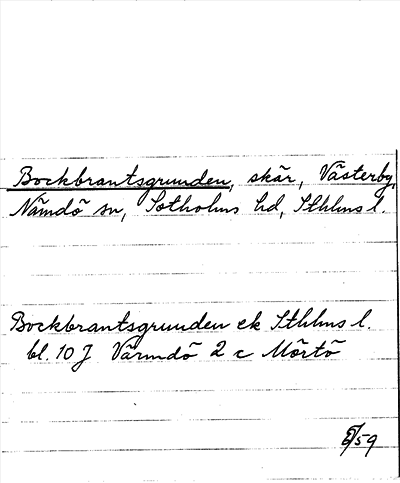 Bockbrantsgrunden, skär, Västerby,
Nämdö sn, Sotholms hd, Sthlms l.
Bockbrantsgrunden ek Sthlms l.
bl. 10 J Värmdö 2 c Mörtö